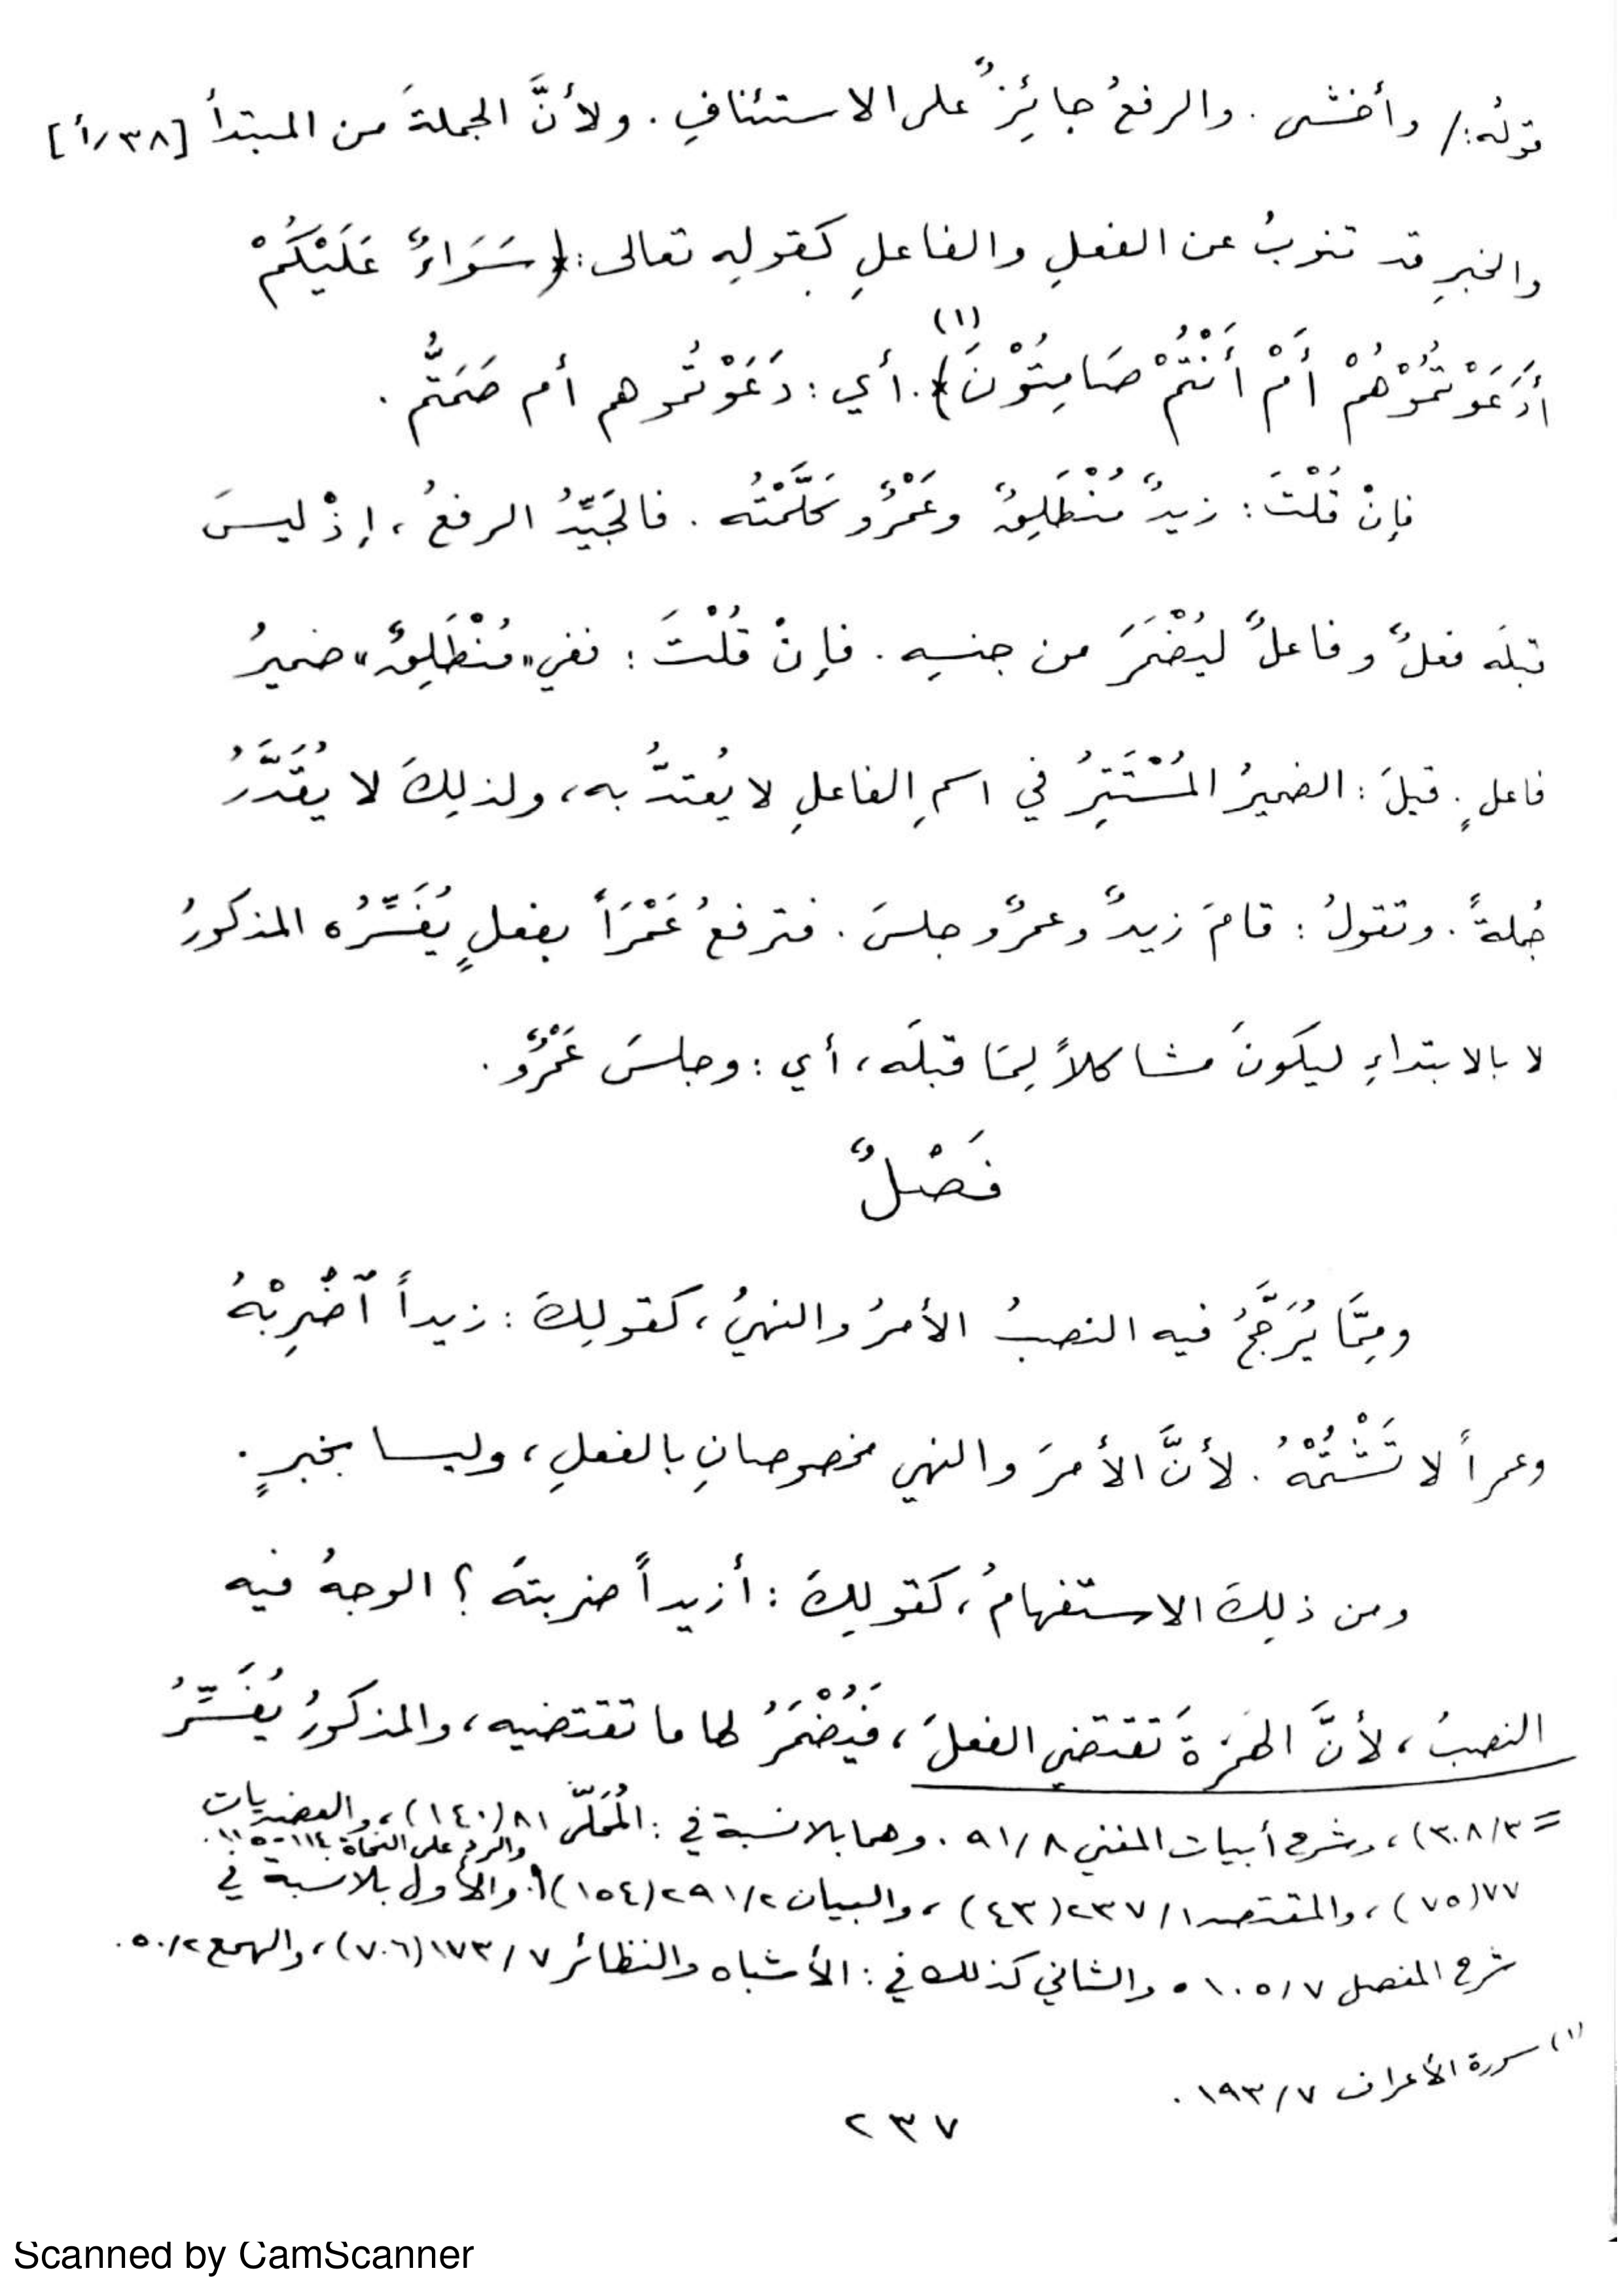 قولُه:/ وأخشى. والرفعُ جائِزٌ على الاستئنافِ. ولأنَّ الجملةَ من المبتدأ [٣٨/أ]
والخبرِ قد تنوبُ عن الفعلِ والفاعلِ كقولِه تعالى: ﴿سَوَاءٌ عَلَيْكُمْ
أَدَعَوْتُمُوْهُمْ أَمْ أَنْتُمْ صَامِتُوْنَ﴾(١). أي: دَعَوْتُموهم أم صَمَتُّم.
فإنْ قُلْتَ: زيدٌ مُنْطَلِقٌ وعَمْرٌو كَلَّمْتُه. فالجَيِّدُ الرفعُ، إذْ ليسَ
قبلَه فعلٌ وفاعلٌ ليُضْمَرَ من جنسِه. فإنْ قُلْتَ: ففي "مُنْطَلِقٌ" ضميرُ
فاعلٍ. قيلَ: الضميرُ المُسْتَتِرُ في اسمِ الفاعلِ لا يُعتدُّ به، ولذلِكَ لا يُقَدَّرُ
جُملةً. وتقولُ: قامَ زيدٌ وعمرٌو جلسَ. فترفعُ عَمْرَاً بفعلٍ يُفَسِّرُه المذكورُ
لا بالابتداءِ ليكونَ مشاكلاً لِمَا قبلَه، أي: وجلسَ عَمْرٌو.
فَصْلٌ
ومِمَّا يُرَجَّحُ فيه النصبُ الأمرُ والنهيُ، كقولِكَ: زيداً اضْرِبْهُ
وعمراً لا تَشْتُمْهُ. لأنَّ الأمرَ والنهي مخصوصانِ بالفعلِ، وليسا بخبرٍ.
ومن ذلِكَ الاستفهامُ، كقولِكَ: أزيداً ضربتَه؟ الوجهُ فيه
النصبُ، لأنَّ الهَمْزةَ تَقتضي الفعلَ، فَيُضْمَرُ لها ما تقتضيه، والمذكورُ يُفَسِّرُ
= ٣٠٨/٣)، وشرح أبيات المغني ٩١/٨. وهما بلا نسبة في: المُحَلّى ٨١ (١٤٠)، والعضديات
والرد على النحاة ١١٤-١١٥.
٧٧ (٧٥)، والمقتصد ٢٣٧/١ (٤٣)، والبيان ٢٩١/٢ (١٥٤). والأول بلا نسبة في
شرح المفصل ١٠٥/٧. والثاني كذلك في: الأشباه والنظائر ١٧٣/٧ (٧٠٦)، والهمع ٥٠/٢.
(١) سورة الأعراف ١٩٣/٧.
٢٣٧
Scanned by CamScanner